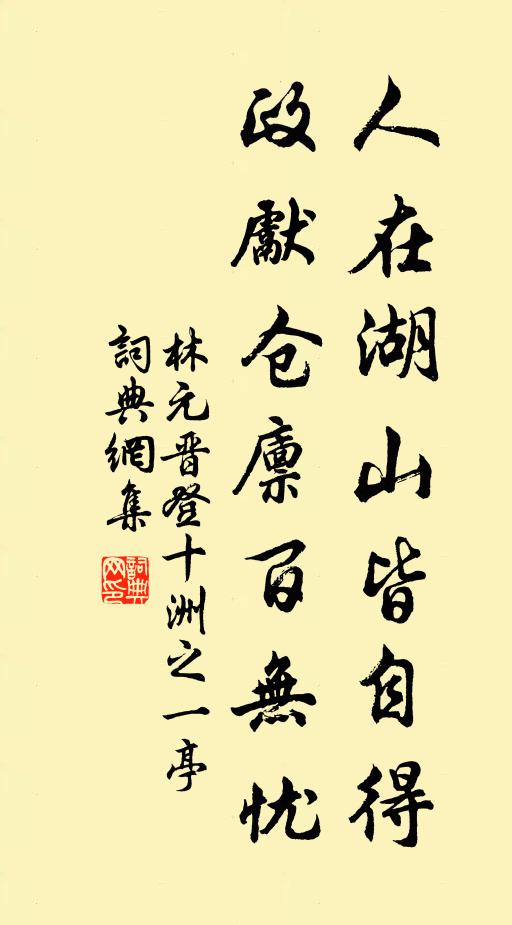 人在湖山皆自得
政獻仓廪百無忧
林元晋登十洲之一亭
詞典網集
詞典网印